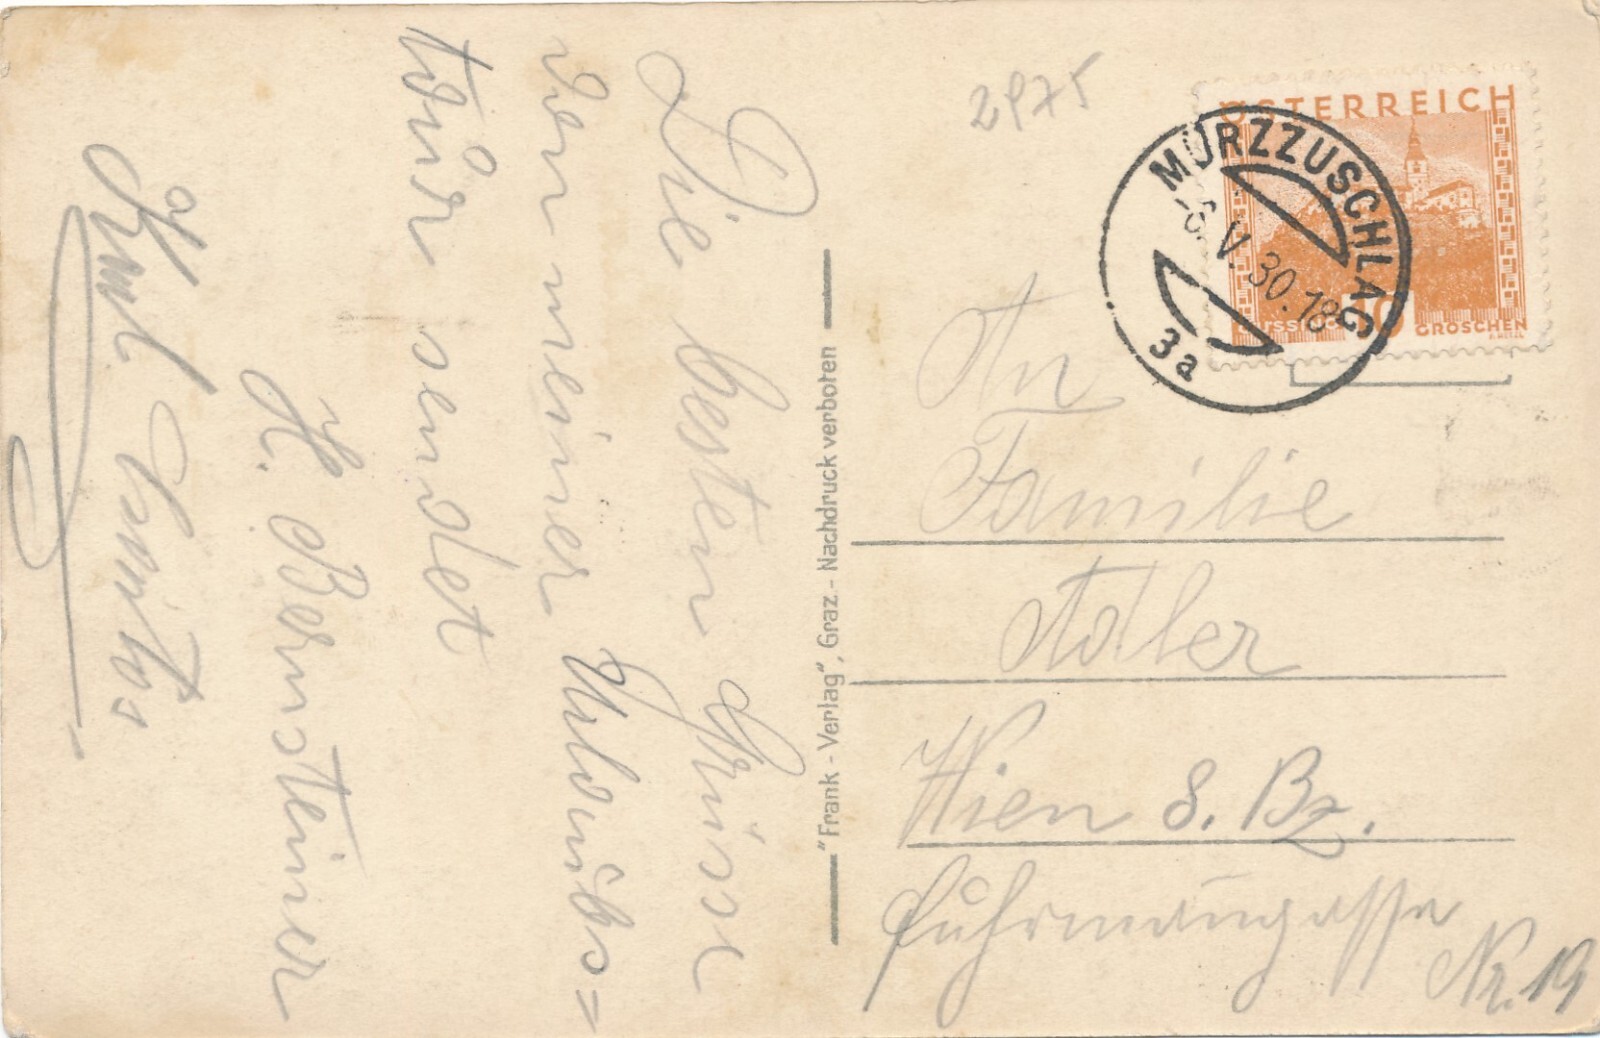 Die besten Grüsse
von meiner Urlaubs=
tour sendet
H. Bernsteiner
Karl
"Frank - Verlag", Graz. - Nachdruck verboten
2975
ÖSTERREICH
10 GROSCHEN
MÜRZZUSCHLAG
-6. V. 30. 18
3a
An
Familie
Adler
Wien 8. Bz.
Fuhrmanngasse
Nr. 19